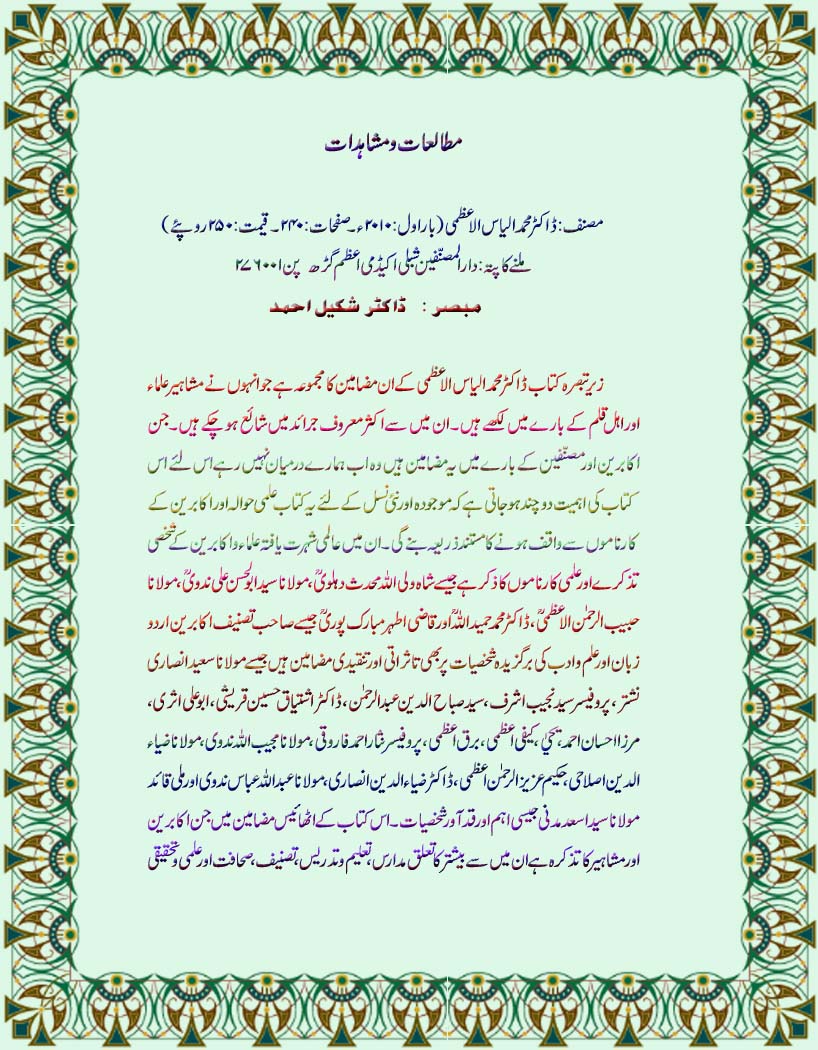 مطالعات و مشاہدات
مصنف: ڈاکٹر محمد الیاس الاعظمی (بار اول: ۲۰۱۰ء۔ صفحات: ۲۴۰۔ قیمت: ۲۵۰ روپئے)
ملنے کا پتہ: دارالمصنّفین شبلی اکیڈمی اعظم گڑھ پن ۲۷۶۰۰۱
مبصر : ڈاکٹر شکیل احمد
زیر تبصرہ کتاب ڈاکٹر محمد الیاس الاعظمی کے ان مضامین کا مجموعہ ہے جو انہوں نے مشاہیر علماء
اور اہل قلم کے بارے میں لکھے ہیں۔ ان میں سے اکثر معروف جرائد میں شائع ہو چکے ہیں۔ جن
اکابرین اور مصنّفین کے بارے میں یہ مضامین ہیں وہ اب ہمارے درمیان نہیں رہے اس لئے اس
کتاب کی اہمیت دوچند ہو جاتی ہے کہ موجودہ اور نئی نسل کے لئے یہ کتاب علمی حوالہ اور اکابرین کے
کارناموں سے واقف ہونے کا مستند ذریعہ بنے گی۔ ان میں عالمی شہرت یافتہ علماء و اکابرین کے شخصی
تذکرے اور علمی کارناموں کا ذکر ہے جیسے شاہ ولی اللہ محدث دہلویؒ، مولانا سید ابوالحسن علی ندویؒ، مولانا
حبیب الرحمٰن الاعظمیؒ، ڈاکٹر محمد حمید اللہؒ اور قاضی اطہر مبارک پوریؒ جیسے صاحب تصنیف اکابرین اردو
زبان اور علم و ادب کی برگزیدہ شخصیات پر بھی تاثراتی اور تنقیدی مضامین ہیں جیسے مولانا سعید انصاری
نشتر، پروفیسر سید نجیب اشرف، سید صباح الدین عبدالرحمٰن، ڈاکٹر اشتیاق حسین قریشی، ابو علی اثری،
مرزا احسان احمد، یحییٰ، کیفی اعظمی، برق اعظمی، پروفیسر نثار احمد فاروقی، مولانا مجیب اللہ ندوی، مولانا ضیاء
الدین اصلاحی، حکیم عزیز الرحمٰن اعظمی، ڈاکٹر ضیاء الدین انصاری، مولانا عبد اللہ عباس ندوی اور ملی قائد
مولانا سید اسعد مدنی جیسی اہم اور قد آور شخصیات۔ اس کتاب کے اٹھائیس مضامین میں جن اکابرین
اور مشاہیر کا تذکرہ ہے ان میں سے بیشتر کا تعلق مدارس، تعلیم و تدریس، تصنیف، صحافت اور علمی و تحقیقی